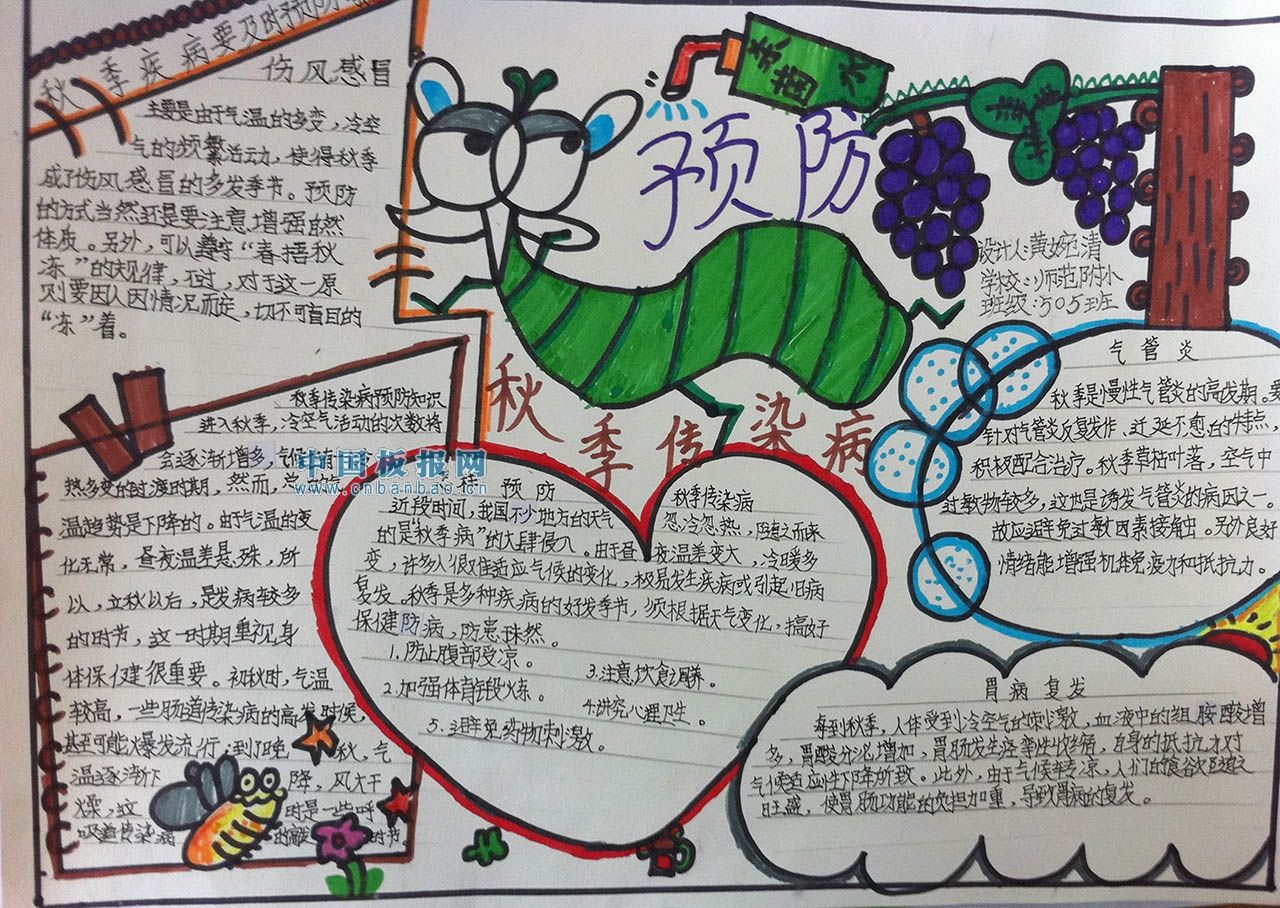 秋季疾病要及时预防
伤风感冒
主要是由于气温的多变，冷空
气的频繁活动，使得秋季
成了伤风感冒的多发季节。预防
的方式当然还是要注意增强自然
体质。另外，可以遵守“春捂秋
冻”的规律，不过，对于这一原
则要因人因情况而定，切不可盲目的
“冻”着。
预防
秋季传染病
设计人：黄婉清
学校：师范附小
班级：505班
秋季传染病预防知识
进入秋季，冷空气活动的次数将
会逐渐增多，气候
热多变的过渡时期，然而，总的
温趋势是下降的。由于气温的变
化无常，昼夜温差悬殊，所
以，立秋以后，是发病较多
的时节，这一时期重视身
体保健很重要。初秋时，气温
较高，一些肠道传染病的高发时候，
甚至可能爆发流行，到了晚秋，气
温逐渐下降，风大干
燥，这时是一些呼
吸道传染病的高时节。
中国板报网
www.cnbanbao.cn
预防
秋季传染病
近段时间，我国不少地方的天气忽冷忽热，随之而来
的是“秋季病”的大肆侵入。由于昼夜温差变大，冷暖多
变，许多人很难适应气候的变化，极易发生疾病或引起旧病
复发。秋季是多种疾病的好发季节，须根据天气变化，搞好
保健防病，防患未然。
1.防止腹部受凉。
2.加强体育锻炼。
3.注意饮食调养。
4.讲究心理卫生。
5.避免药物刺激。
气管炎
秋季是慢性气管炎的高发期。要
针对气管炎反复发作、迁延不愈的特点，
积极配合治疗。秋季草枯叶落，空气中
过敏物较多，这也是诱发气管炎的病因之一。
故应避免过敏因素接触出。另外良好
情绪能增强机体免疫力和抵抗力。
胃病复发
每到秋季，人体受到冷空气的刺激，血液中的组胺酸增
多，胃酸分泌增加，胃肠发生痉挛性收缩，自身的抵抗力对
气候适应性下降所致。此外，由于气候转凉，人们的食欲随之
旺盛，使胃肠功能的负担加重，导致胃病的复发。